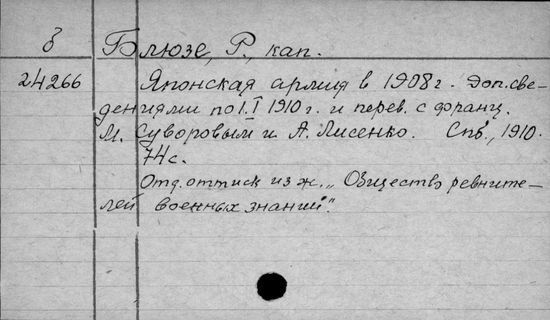 б Блюзе, Р., кап.
24266 Японская армия в 1908г. Доп. све-
дениями по 1.I 1910г. и перев. с франц.
М. Суворовым и А. Лисенко. Спб., 1910.
74с.
Отд. оттиск из ж. „Общество ревните-
лей военных знаний".